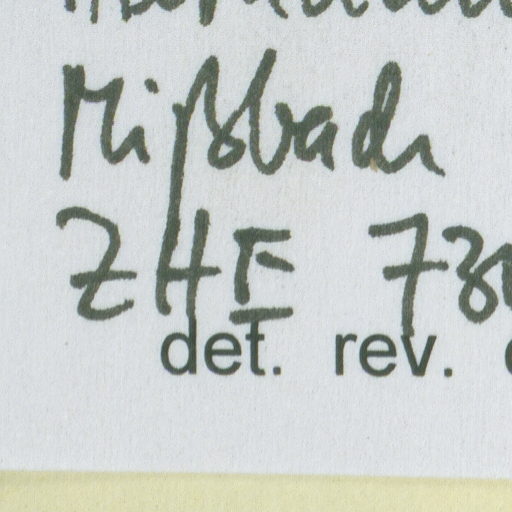 Mißbach
ZHE 730
det. rev.